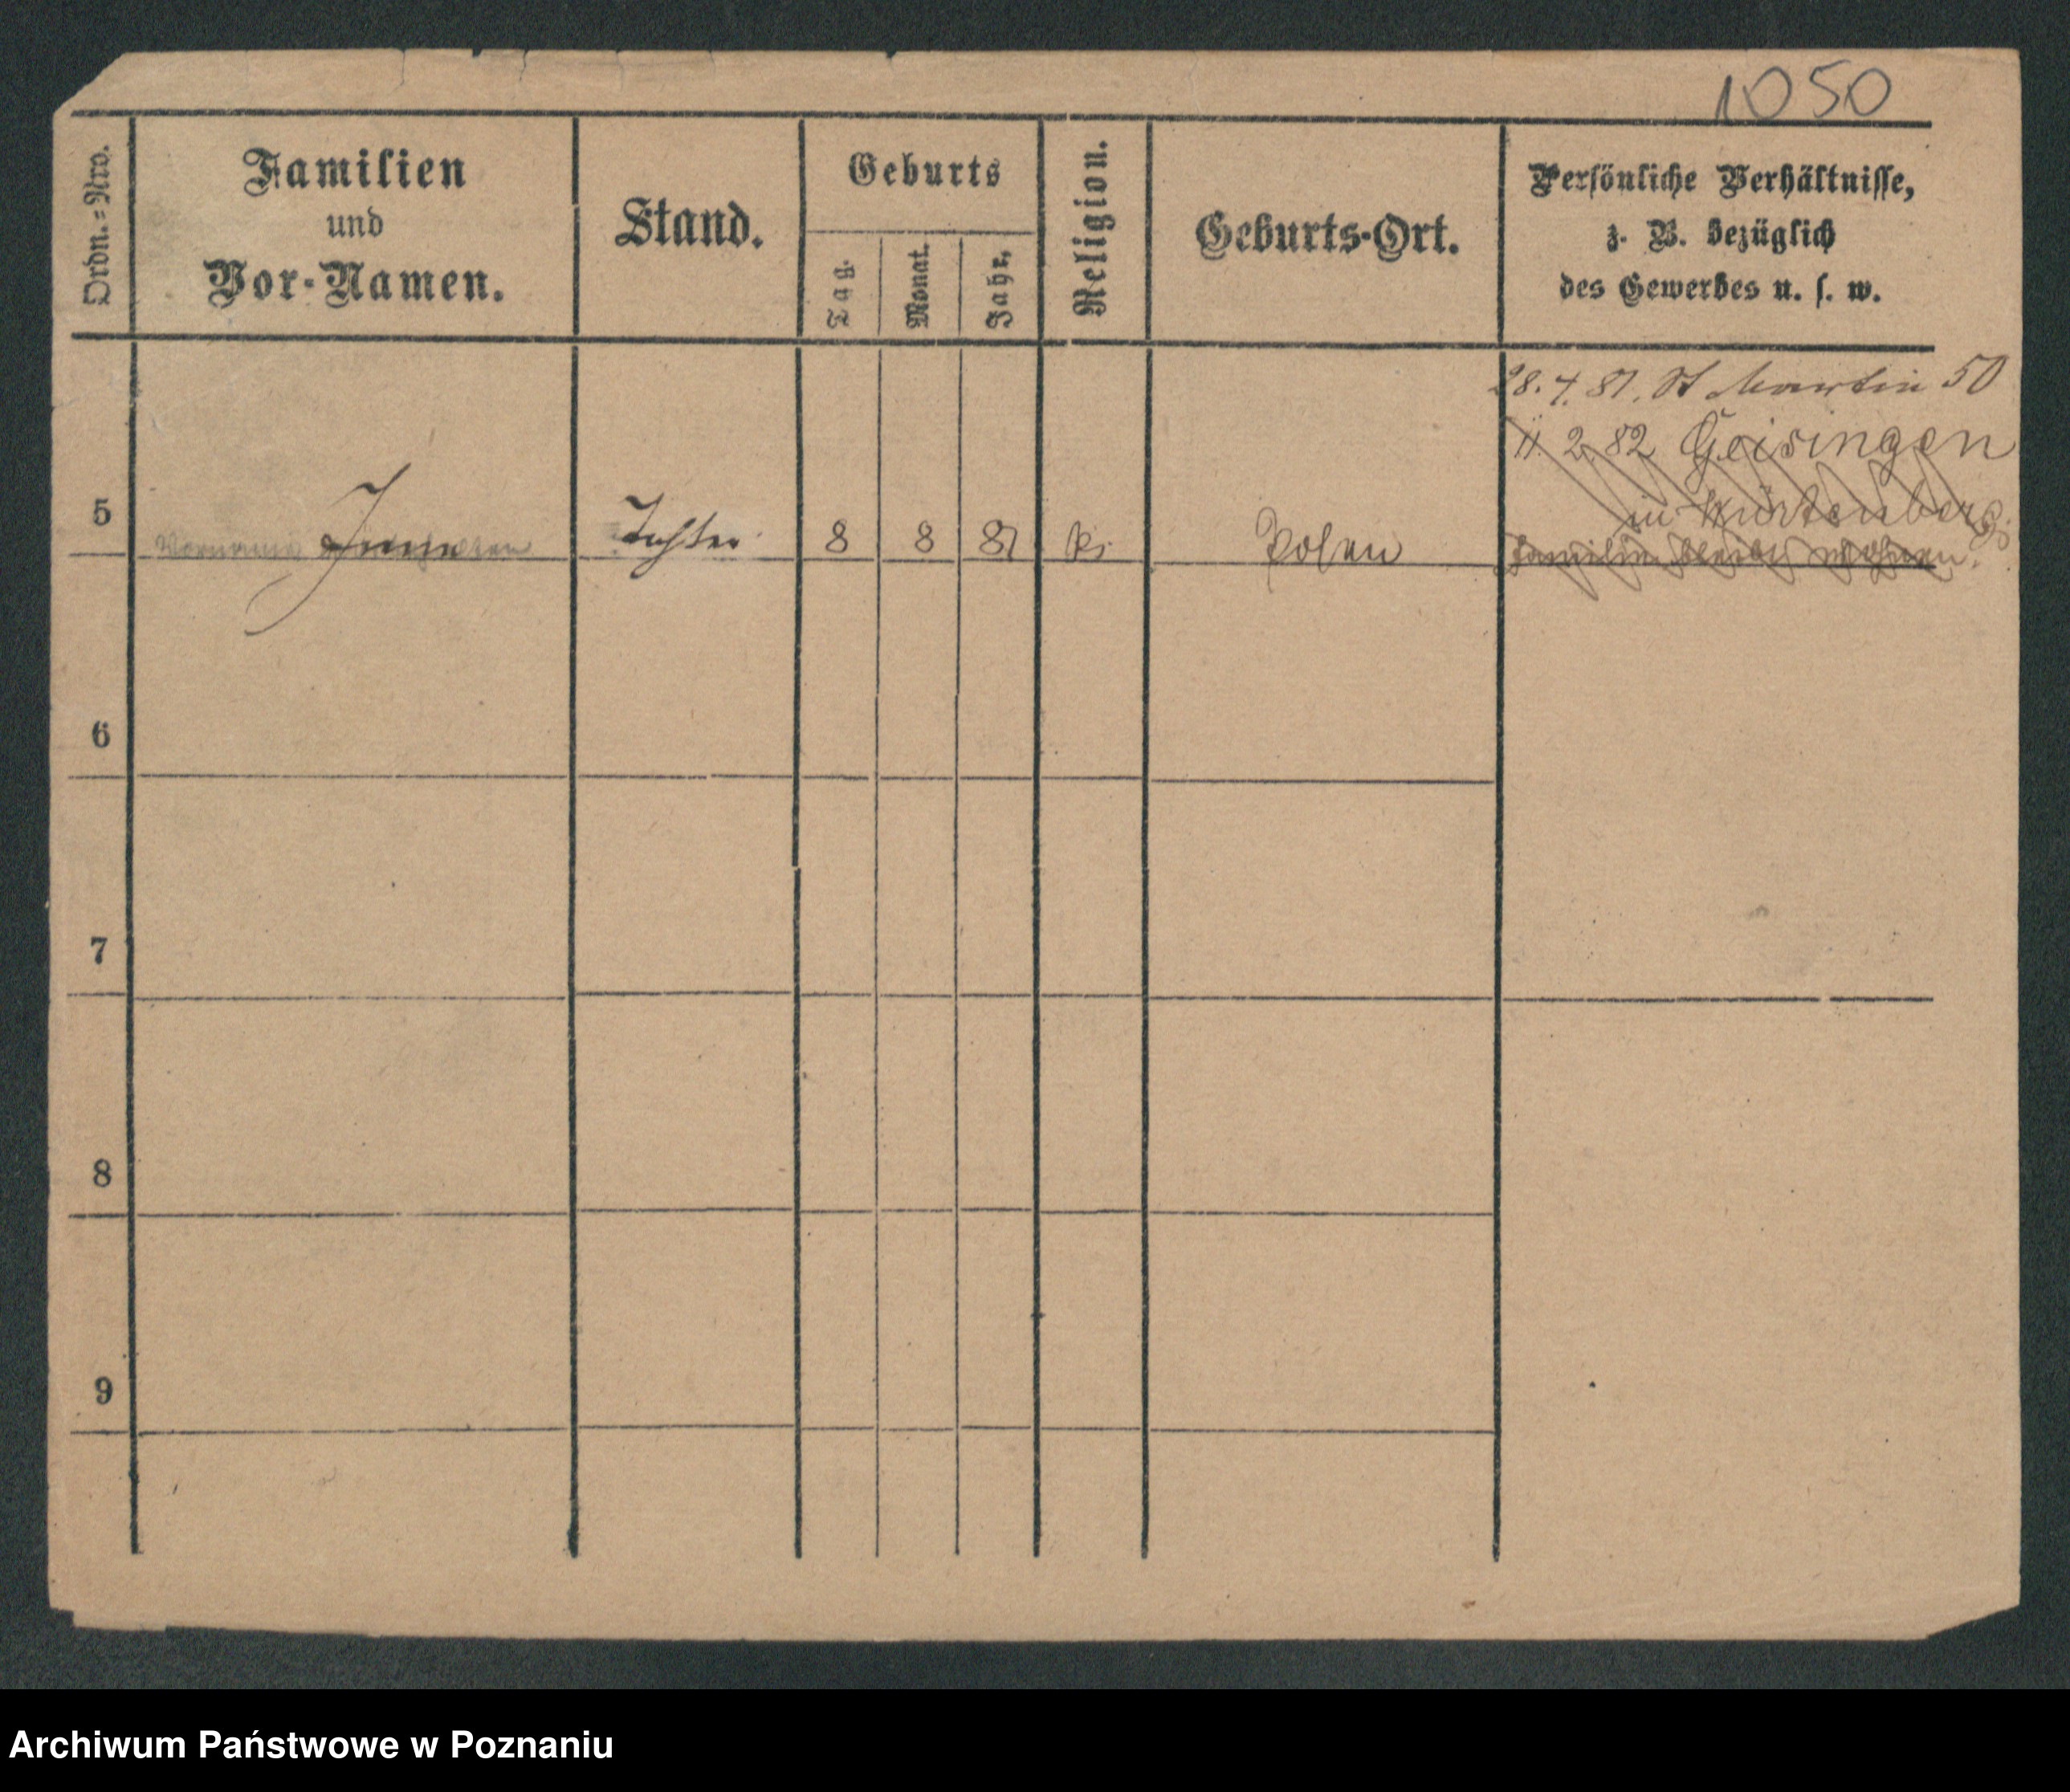 1050
Ordn.=Nro.
Familien
und
Vor-Namen.
Stand.
Geburts
Tag.
Monat.
Jahr.
Religion.
Geburts-Ort.
Persönliche Verhältnisse,
z. B. bezüglich
des Gewerbes u. s. w.
28. 4. 81. St Martin 50
11. 2. 82 Geisingen
in Würtenberg
5 Tochter 8 8 81 Posen
Familie bleibt wohnen.
6
7
8
9
Archiwum Państwowe w Poznaniu